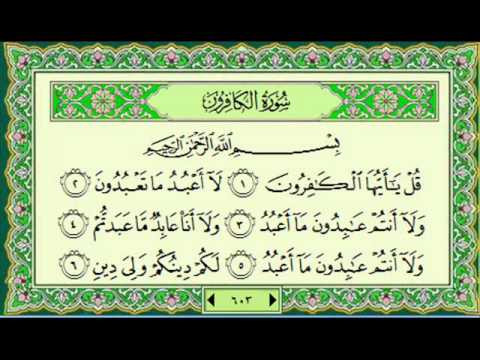 سُورَةُ الكَافِرُونَ
بِسْمِ اللَّهِ الرَّحْمَٰنِ الرَّحِيمِ
قُلْ يَٰٓأَيُّهَا ٱلْكَٰفِرُونَ ١ لَآ أَعْبُدُ مَا تَعْبُدُونَ ٢
وَلَآ أَنتُمْ عَٰبِدُونَ مَآ أَعْبُدُ ٣ وَلَآ أَنَا۠ عَابِدٌ مَّا عَبَدتُّمْ ٤
وَلَآ أَنتُمْ عَٰبِدُونَ مَآ أَعْبُدُ ٥ لَكُمْ دِينُكُمْ وَلِىَ دِينِ ٦
٦٠٣